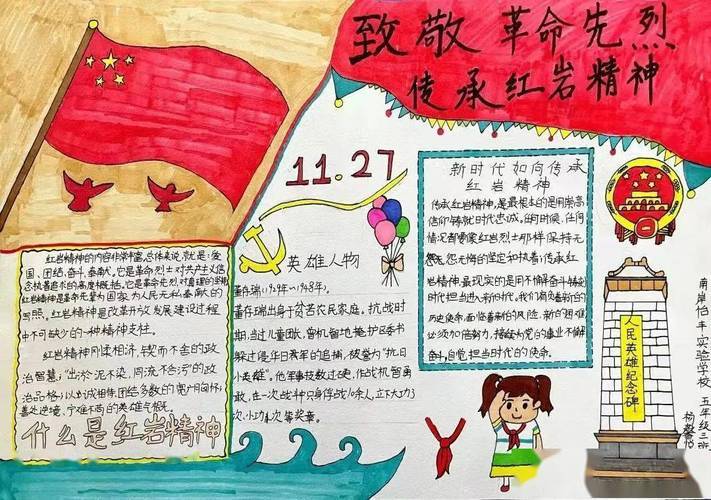 致敬革命先烈
传承红岩精神
11.27
红岩精神的内容非常丰富,总体来说就是:爱
国、团结、奋斗、奉献。它是革命烈士对共产主义信
念执着追求的高度概括。它是革命先烈对真理的坚持
红岩精神是革命先辈为国家为人民无私奉献的
写照。红岩精神是改革开放发展建设过程
中不可缺少的一种精神支柱。
红岩精神刚柔相济,锲而不舍的政
治智慧;“出淤泥不染,同流不合污”的政
治品格;以诚相待,团结多数的宽广胸怀;
善处逆境,宁难不苟的英雄气概。
什么是红岩精神
英雄人物
董存瑞(1929年~1948年)。
董存瑞出身于贫苦农民家庭。抗战时
期,当过儿童团长,曾机智地掩护区委书
躲过侵华日寇军的追捕,被誉为“抗日
小英雄”。他军事技术过硬,作战机智勇
敢,在一次战斗中只身俘敌10余人,立下大功3
次、小功4次等奖章。
新时代如何传承
红岩精神
传承红岩精神,是最根本的是用崇高
信仰铸就时代忠诚。任何时候、任何
情况都要像红岩烈士那样保持无
怨无悔的坚和执着;传承红
岩精神最现实的是用不懈奋斗铸刻
时代担当进入新时代,我们肩负着新的
历史使命,面临着新的风险、新的困难
必须加倍努力,接续为党的事业不懈
奋斗,自觉担当时代的使命。
人民英雄纪念碑
南岸怡丰实验学校
五年级三班